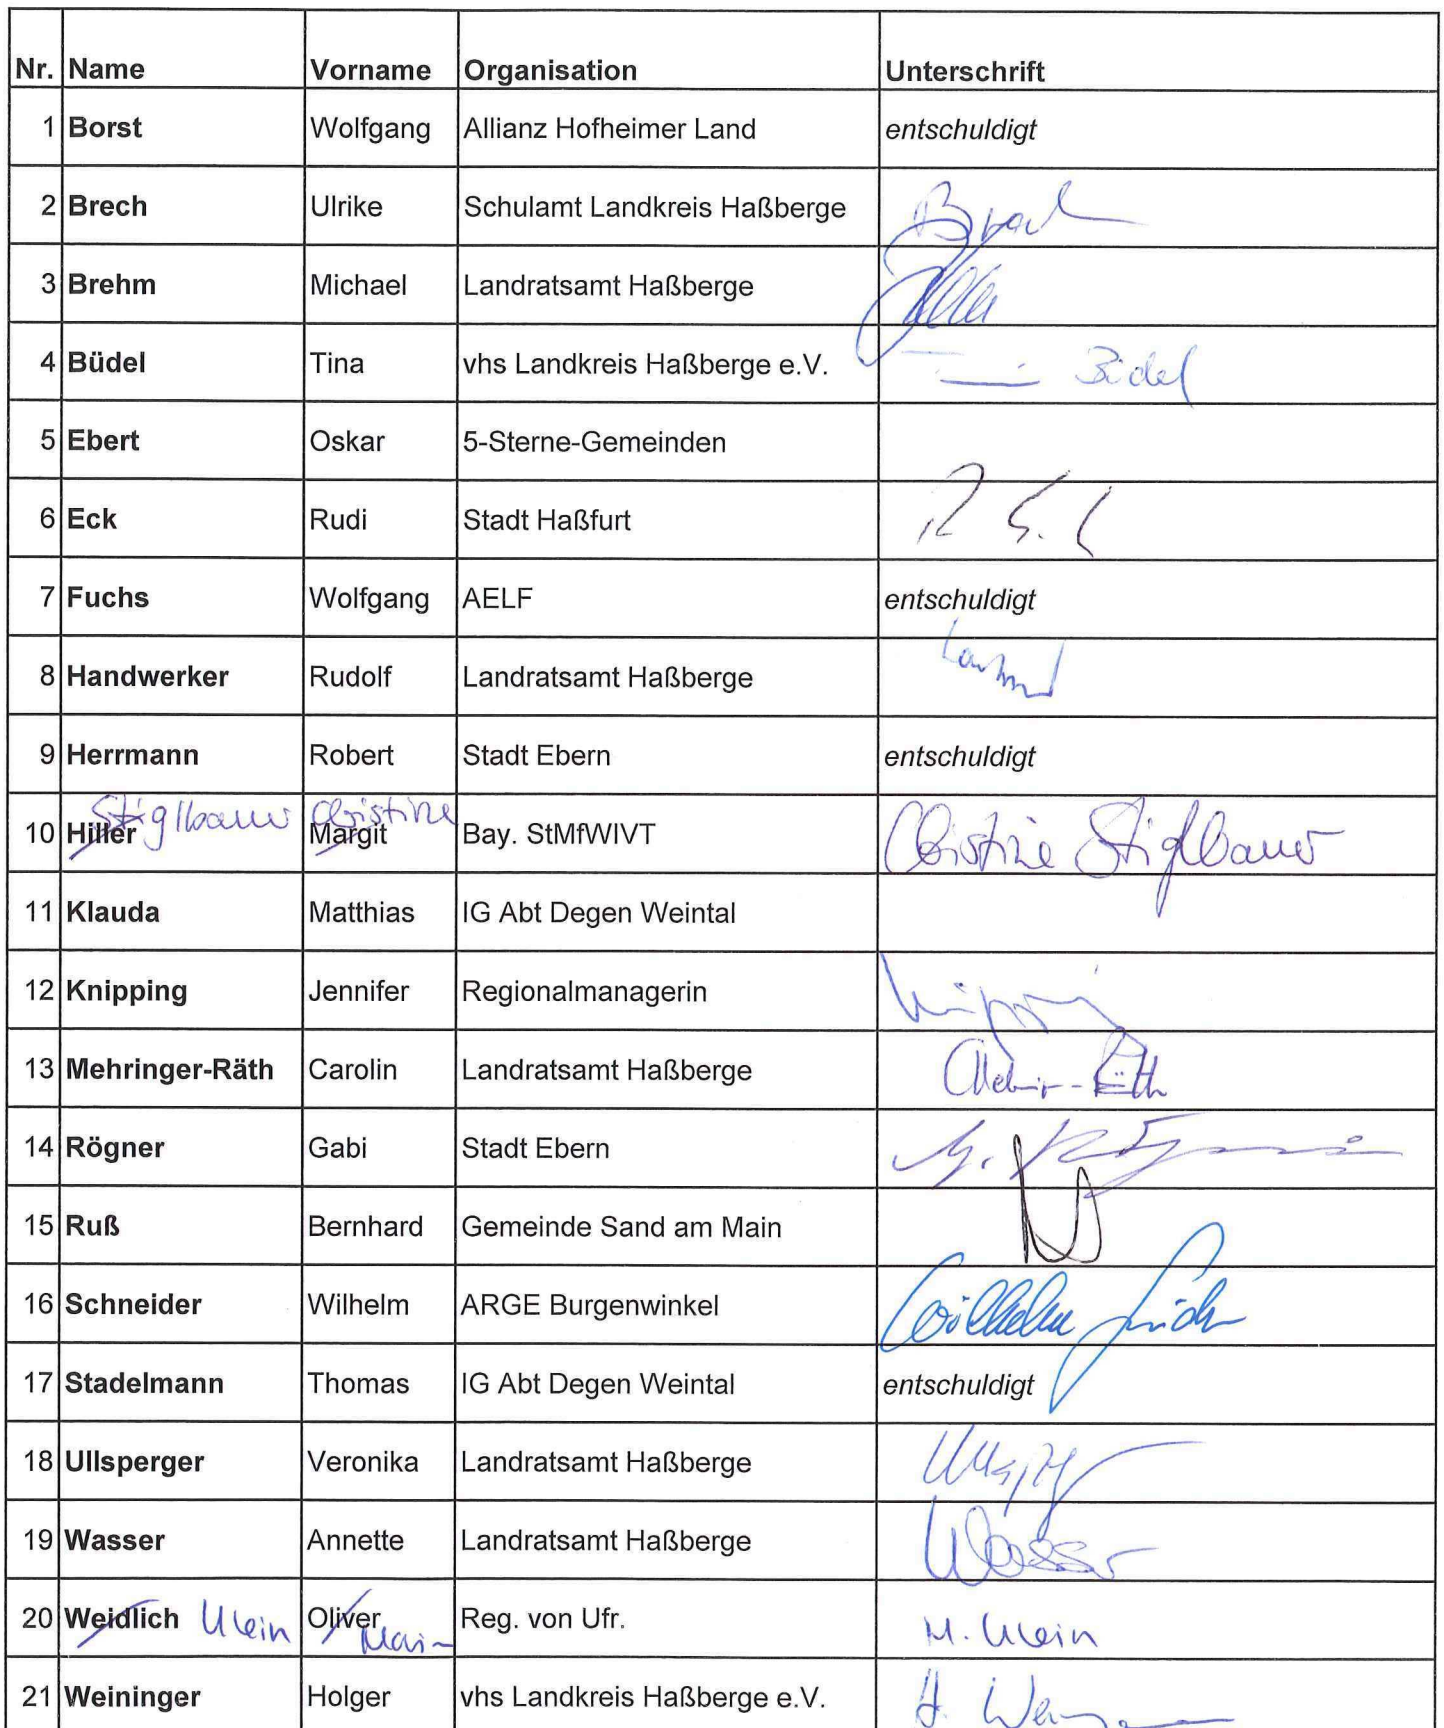 Nr. Name Vorname Organisation Unterschrift
1 Borst Wolfgang Allianz Hofheimer Land entschuldigt
2 Brech Ulrike Schulamt Landkreis Haßberge Brech
3 Brehm Michael Landratsamt Haßberge
4 Büdel Tina vhs Landkreis Haßberge e.V. Büdel
5 Ebert Oskar 5-Sterne-Gemeinden
6 Eck Rudi Stadt Haßfurt
7 Fuchs Wolfgang AELF entschuldigt
8 Handwerker Rudolf Landratsamt Haßberge
9 Herrmann Robert Stadt Ebern entschuldigt
Stiglbauer Christine
10 Hiller Margit Bay. StMfWIVT Christine Stiglbauer
11 Klauda Matthias IG Abt Degen Weintal
12 Knipping Jennifer Regionalmanagerin
13 Mehringer-Räth Carolin Landratsamt Haßberge
14 Rögner Gabi Stadt Ebern
15 Ruß Bernhard Gemeinde Sand am Main
16 Schneider Wilhelm ARGE Burgenwinkel Wilhelm
17 Stadelmann Thomas IG Abt Degen Weintal entschuldigt
18 Ullsperger Veronika Landratsamt Haßberge
19 Wasser Annette Landratsamt Haßberge Wasser
20 Weidlich Klein Oliver Reg. von Ufr. M. Klein
21 Weininger Holger vhs Landkreis Haßberge e.V. H.